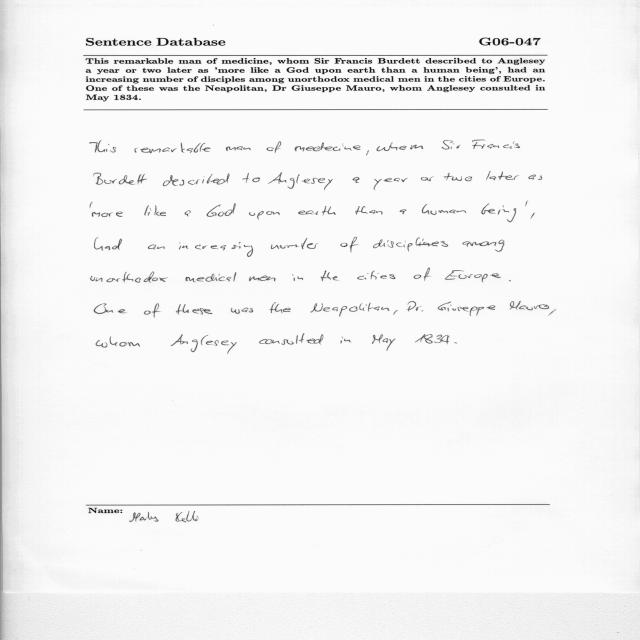 Sentence Database G06-047
This remarkable man of medicine, whom Sir Francis Burdett described to Anglesey
a year or two later as 'more like a God upon earth than a human being', had an
increasing number of disciples among unorthodox medical men in the cities of Europe.
One of these was the Neapolitan, Dr Giuseppe Mauro, whom Anglesey consulted in
May 1834.
This remarkable man of medecine, whom Sir Francis
Burdett described to Anglesey a year or two later as
'more like a God upon earth than a human being',
had an increasing number of disciplines among
unorthodox medical men in the cities of Europe.
One of these was the Neapolitan, Dr. Giuseppe Mauro,
whom Anglesey consulted in May 1834.
Name: